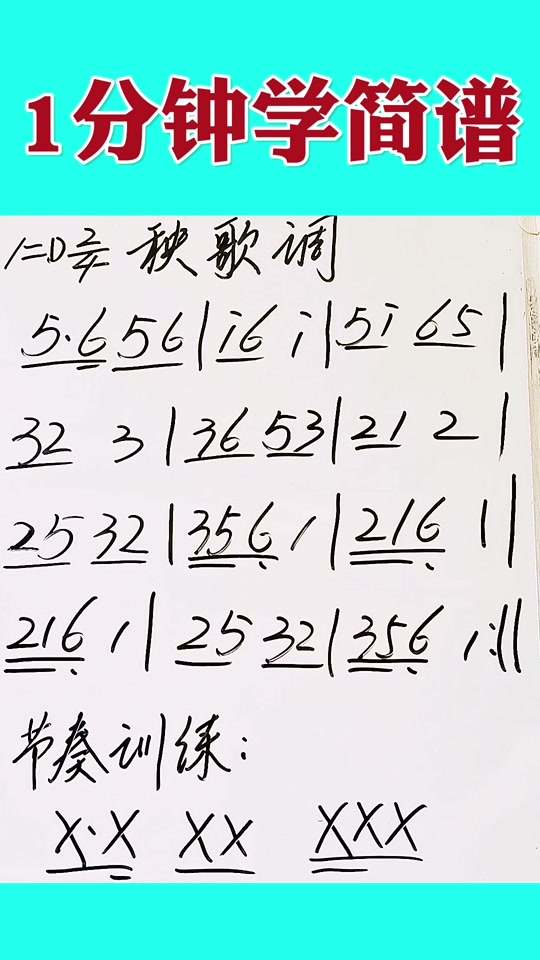 1分钟学简谱
1=D 2/4 秧歌调
5·6 56 | i6 i | 5i 65 |
32 3 | 36 53 | 21 2 |
25 32 | 356 1 | 216 1 |
216 1 | 25 32 | 356 1 :||
节奏训练:
X·X XX XXX